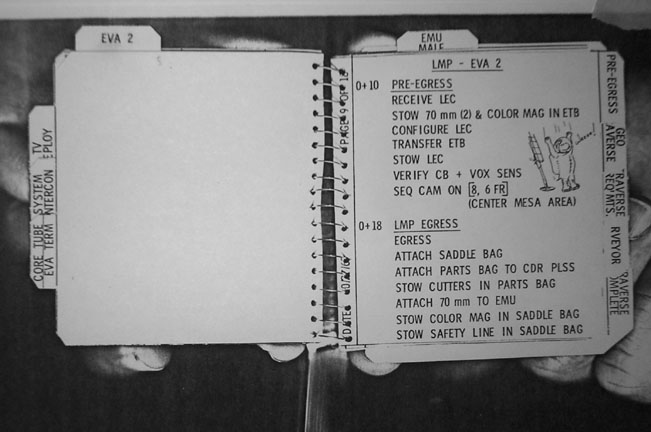 EVA 2
CORE TUBE SYSTEM TV
EVA TERM NTERCON EPLOY
EMU
MALF
LMP - EVA 2
0+10 PRE-EGRESS
RECEIVE LEC
STOW 70 mm (2) & COLOR MAG IN ETB
CONFIGURE LEC
TRANSFER ETB
STOW LEC
VERIFY CB + VOX SENS
SEQ CAM ON 8, 6 FR
(CENTER MESA AREA)
0+18 LMP EGRESS
EGRESS
ATTACH SADDLE BAG
ATTACH PARTS BAG TO CDR PLSS
STOW CUTTERS IN PARTS BAG
ATTACH 70 mm TO EMU
STOW COLOR MAG IN SADDLE BAG
STOW SAFETY LINE IN SADDLE BAG
PAGE 9 OF
DATE
PRE-EGRESS
GEO
AVERSE
RAVERSE
REQ'MTS.
RVEYOR
RAVERSE
OMPLETE